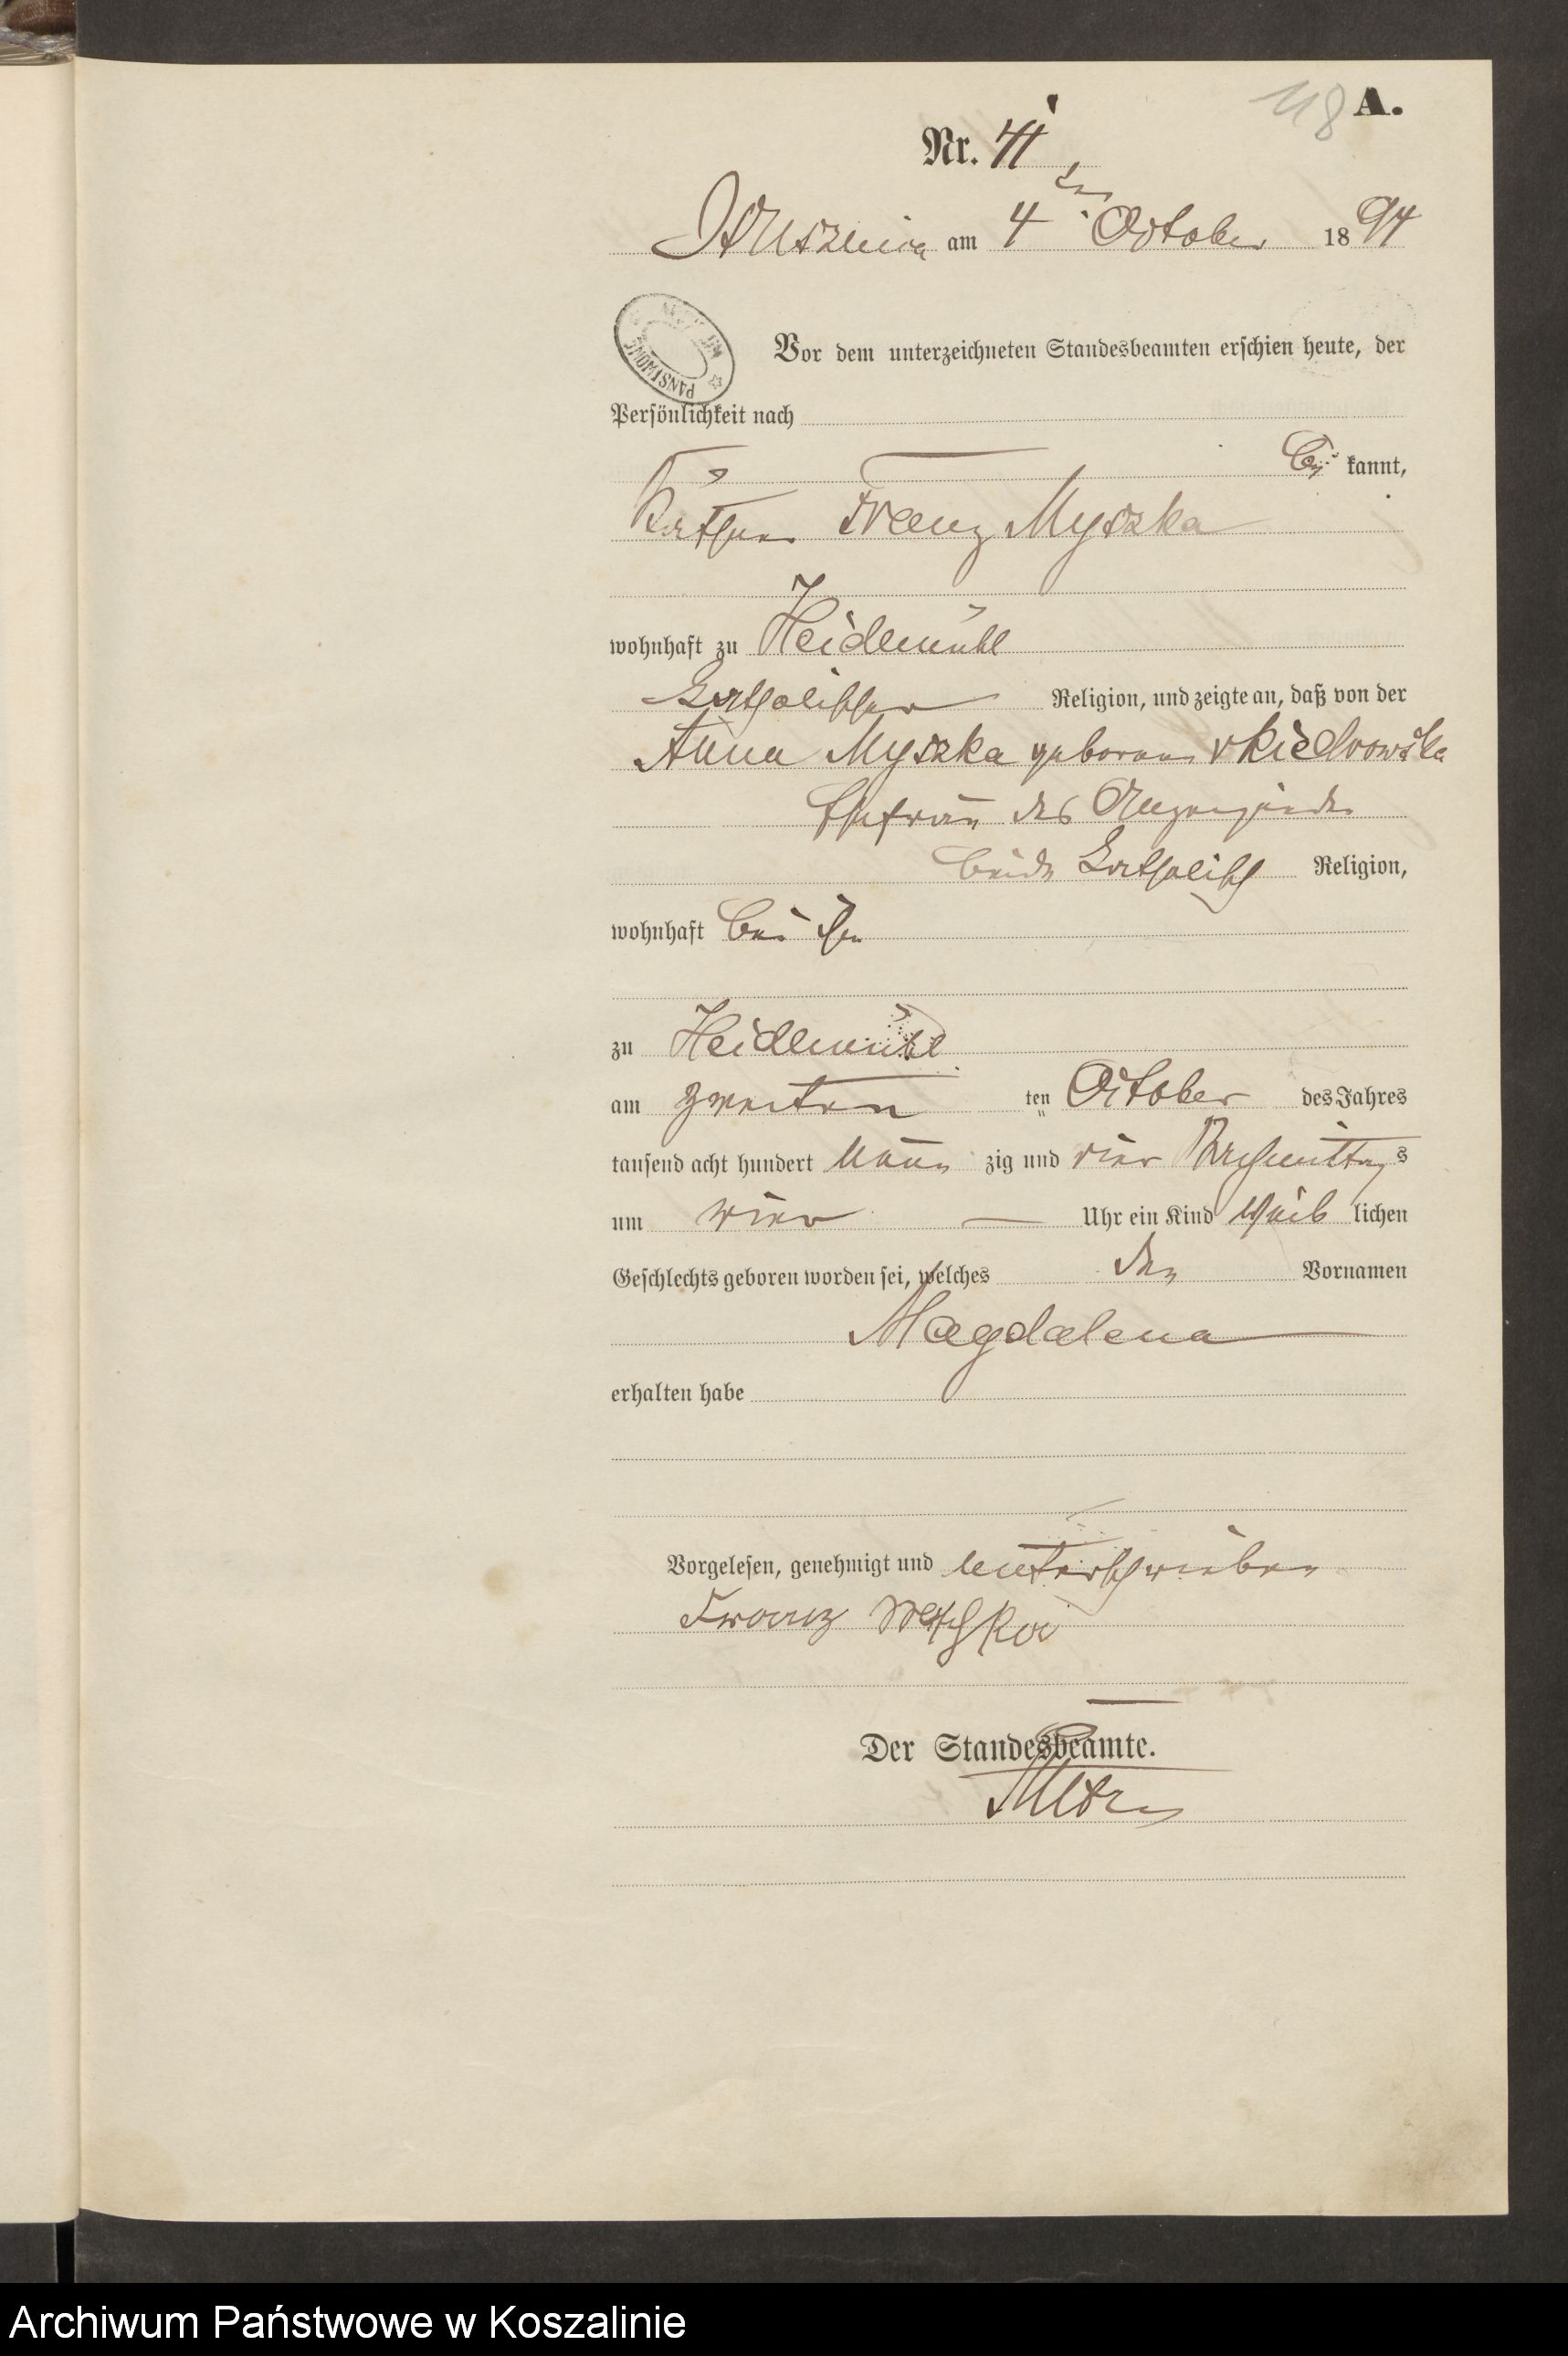 118 A.
Nr. 41
am 4ten October 1894
PAŃSTWOWE
Vor dem unterzeichneten Standesbeamten erschien heute, der
Persönlichkeit nach
be kannt,
Käthner Franz Myszka
wohnhaft zu Heidemühl
katholischer Religion, und zeigte an, daß von der
Anna Myszka geborenen
Ehefrau des Anzeigenden
beide katholisch Religion,
wohnhaft bei ihm
zu Heidemühl
am zweiten ten October des Jahres
tausend acht hundert neun zig und vier Nachmittag s
um vier Uhr ein Kind weib lichen
Geschlechts geboren worden sei, welches den Vornamen
Magdalena
erhalten habe
Vorgelesen, genehmigt und unterschrieben
Franz
Der Standesbeamte.
Archiwum Państwowe w Koszalinie